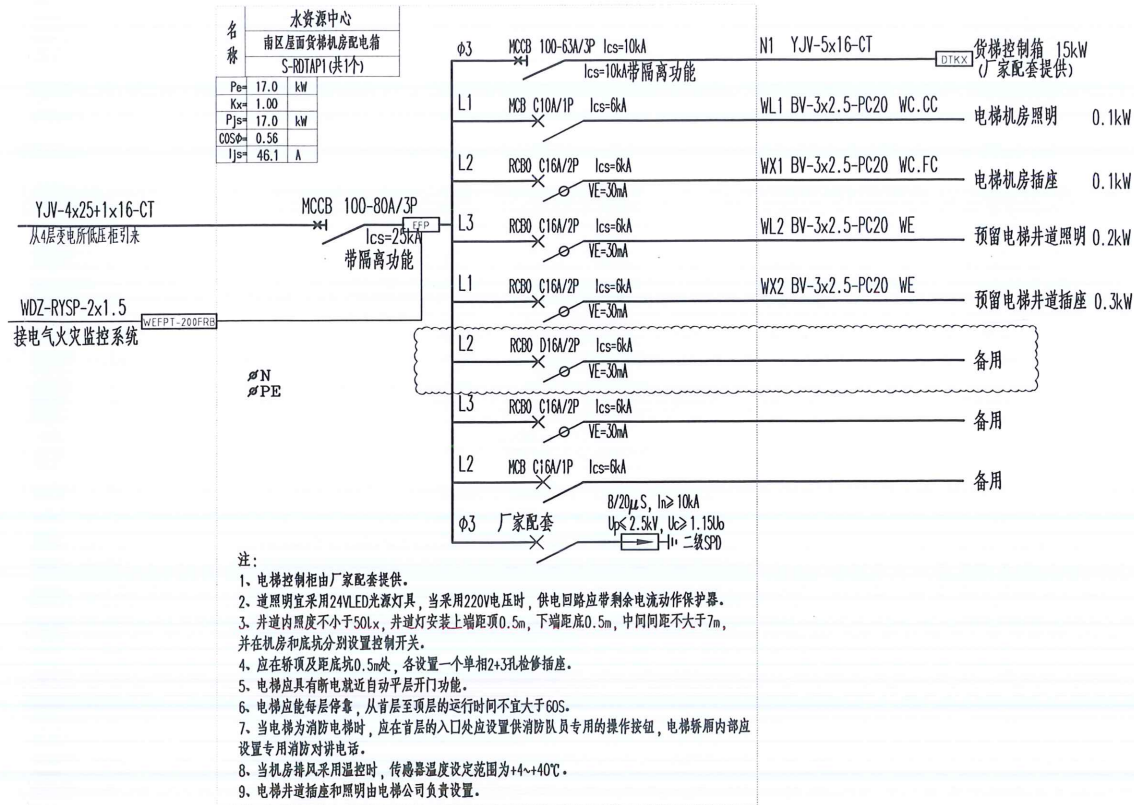 名称
水资源中心
南区屋面货梯机房配电箱
S-RDTAP1(共1个)
Pe= 17.0 kW
Kx= 1.00
Pjs= 17.0 kW
COSΦ= 0.56
Ijs= 46.1 A
YJV-4x25+1x16-CT
从4层变电所低压柜引来
MCCB 100-80A/3P
Ics=25kA
带隔离功能
EFP
WDZ-RYSP-2x1.5
WEFPT-200FRB
接电气火灾监控系统
øN
øPE
φ3 MCCB 100-63A/3P Ics=10kA N1 YJV-5x16-CT DTKX 货梯控制箱 15kW
Ics=10kA带隔离功能 (厂家配套提供)
L1 MCB C10A/1P Ics=6kA WL1 BV-3x2.5-PC20 WC.CC 电梯机房照明 0.1kW
L2 RCBO C16A/2P Ics=6kA WX1 BV-3x2.5-PC20 WC.FC 电梯机房插座 0.1kW
VE=30mA
L3 RCBO C16A/2P Ics=6kA WL2 BV-3x2.5-PC20 WE 预留电梯井道照明 0.2kW
VE=30mA
L1 RCBO C16A/2P Ics=6kA WX2 BV-3x2.5-PC20 WE 预留电梯井道插座 0.3kW
VE=30mA
L2 RCBO D16A/2P Ics=6kA 备用
VE=30mA
L3 RCBO C16A/2P Ics=6kA 备用
VE=30mA
L2 MCB C16A/1P Ics=6kA 备用
8/20μS, In≥10kA
φ3 厂家配套 Up≤2.5kV, Uc≥1.15Uo
二级SPD
注:
1、电梯控制柜由厂家配套提供。
2、道照明宜采用24VLED光源灯具，当采用220V电压时，供电回路应带剩余电流动作保护器。
3、井道内照度不小于50lx，井道灯安装上端距顶0.5m，下端距底0.5m，中间间距不大于7m，
并在机房和底坑分别设置控制开关。
4、应在轿顶及距底坑0.5m处，各设置一个单相2+3孔检修插座。
5、电梯应具有断电就近自动平层开门功能。
6、电梯应能每层停靠，从首层至顶层的运行时间不宜大于60S。
7、当电梯为消防电梯时，应在首层的入口处应设置供消防队员专用的操作按钮，电梯轿厢内部应
设置专用消防对讲电话。
8、当机房排风采用温控时，传感器温度设定范围为+4~+40℃。
9、电梯井道插座和照明由电梯公司负责设置。